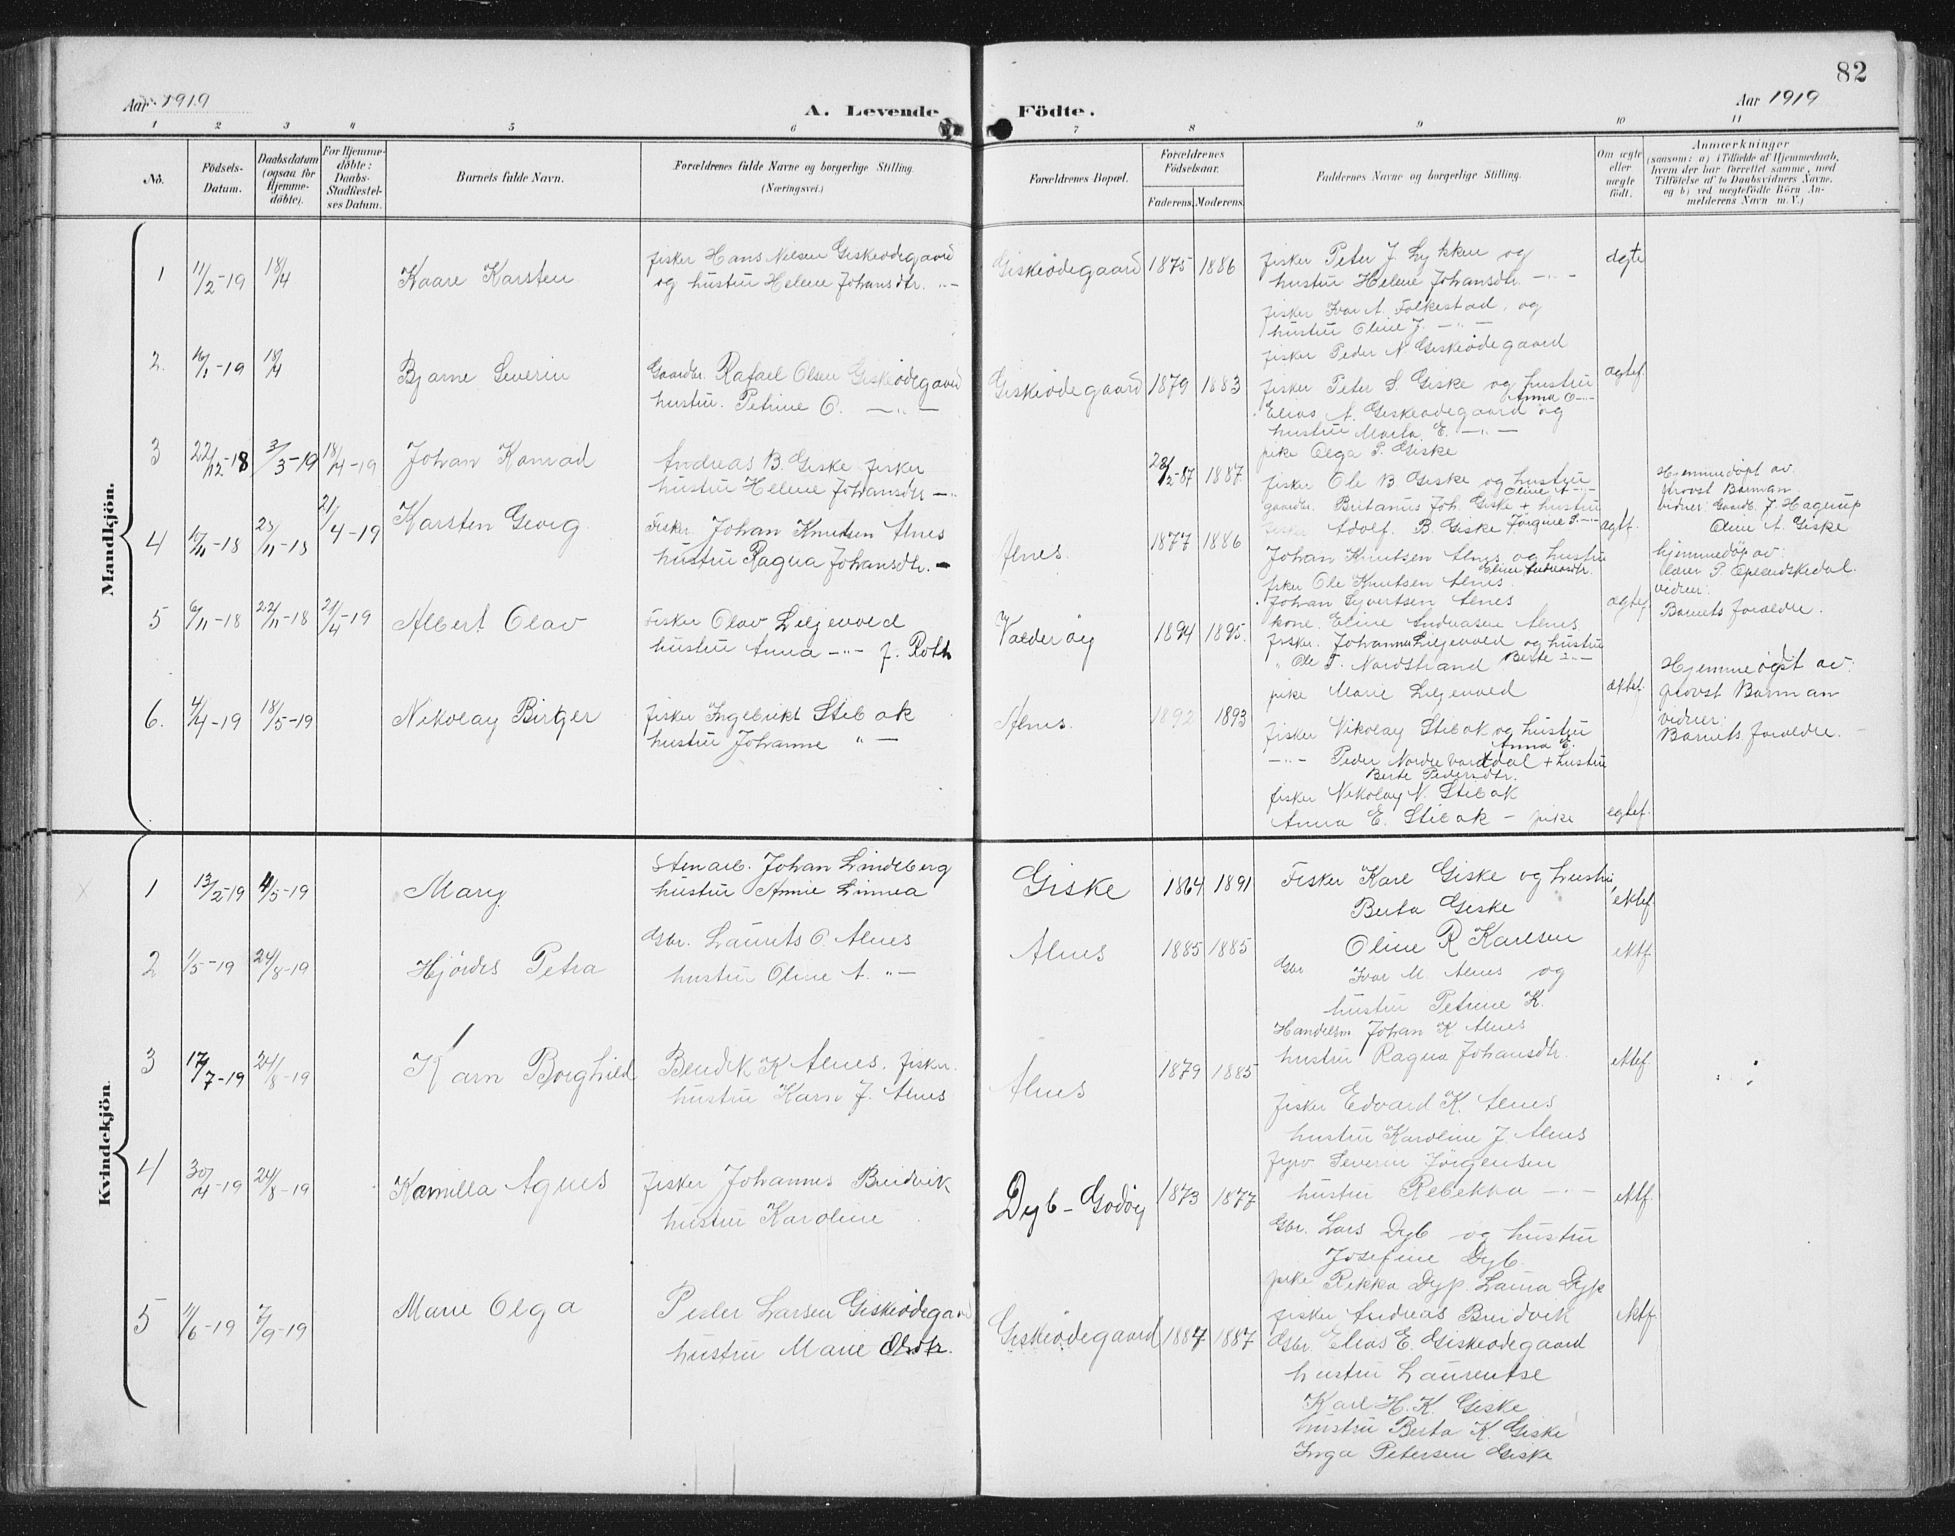 82
Aar 1919
A. Levende Födte.
Aar 1919
1 2 3 4 5 6 7 8 9 10 11
No.
Födsels-Datum.
Daabsdatum (ogsaa for Hjemme-döbte).
For Hjemme-döbte: Daabs-Stadfæstel-ses Datum.
Barnets fulde Navn.
Forældrenes fulde Navne og borgerlige Stilling. (Næringsvei.)
Forældrenes Bopæl.
Forældrenes Födselsaar.
Faderens. Moderens.
Faddernes Navne og borgerlige Stilling.
Om ægte eller uægte födt.
Anmærkninger
(saasom: a) i Tilfælde af Hjemmedaab, hvem der har forrettet samme, med Tilföielse af to Daabsvidners Navne, og b) ved uægtefödte Börn An-melderens Navn m. V.)
Mandkjön.
1 11/2-19 18/4 Kaare Karsten
fisker Hans Nilsen Giskeødegaard
og hustru Helene Johansdtr. -"-
Giskeødegaard 1875 1886
fisker Peter J. Lykken og
hustru Helene Johansdtr. -"-
fisker Ivar A. Folkestad, og
hustru Oline J. -"-
fisker Peder N. Giskeødegaard
ægte
2. 16/1-19 18/4 Bjarne Severin
Gaardbr. Rafael Olsen Giskeødegaard
hustru. Petrine O. -"-
Giskeødegaard 1879 1883
fisker Peter S. Giske og hustru
Anna O -"-
Elias A. Giskeødegaard og
hustru Marta E. -"-
pike Olga P. Giske
ægtef.
3 22/12-18 3/3-19 18/4-19 Johan Konrad
Andreas B. Giske fisker
hustru Helene Johansdtr -"-
28/2-87 1887
fisker Ole B Giske og hustru
Oline A -"-
gaardbr. Britanus Joh. Giske + hustru
Adolf. B. Giske Jørgine P. -"-
ægtf.
Hjemmedøpt av
provst Barman
vidner: Gaardb. J. Hagerup
Oline A. Giske
4 10/11-18 25/11-18 21/4-19 Karsten Georg.
Fisker Johan Knutsen Alnes
hustru Ragna Johansdtr. -
Alnes. 1877 1886
Johan Knutsen Alnes og hustru
Eline Andreasdtr.
fisker Ole Knutsen Alnes
Johan Syvertsen Alnes
kone. Eline Andreasen Alnes
ægtef
hjemmedøp av:
lærer P. Oplendskedal.
vidner:
Barnets foreldre.
5 6/11-18 22/11-18 21/4-19 Albert Olav
Fisker Olav Liljevold
hustru Anna -"- f. Roth
Valderøy 1894 1895.
fisker. Johannes Liljevold og hustru
" Ole T. Nordstrand Berte -"-
pike Marie Liljevold
ektef.
Hjemmedøpt av:
provst Barman
vidner:
Barnets foreldre.
6. 4/4-19 18/5-19 Nikolay Birger
fisker Ingebrikt Stibak
hustru Johanne " -
Alnes. 1892 1893
fisker Nikolay Stibak og hustru
Anna E.
-"- Peder Nordre Vartdal + hustru
Berte Pedersdtr.
fisker Nikolay N. Stibak
Anna E. Stibak - pike
egtef.
Kvindekjön.
1 13/2-19 4/5-19 Mary
Stenarb. Johan Lindeberg
hustru Annie Linnea
Giske 1864 1891
Fisker Karl Giske og hustru
Berta Giske
Oline R Karlsen
ektef
2 1/5-19 24/8-19 Hjørdis Petra
Gbr. Laurits O. Alnes
hustru Oline A. "-
Alnes 1885 1885
Gbr Ivar M. Alnes og
hustru Petrine K.
Handelsm Johan K Alnes
hustru Ragna Johansdtr.
ektf
3 17/7-19 24/8-19 Karn Borghild
Bendik K Alnes. fisker.
hustru Karn J. Alnes
Alnes 1879 1885
fisker Edvard K. Alnes
hustru Karoline J. Alnes
fyrv Severin Jørgensen
hustru Rebekka -"-
ektef
4 30/4-19 24/8-19 Kamilla Agnes
fisker Johannes Burdvik
hustru Karoline
Dyb-Godøy 1873 1877
Gbr. Lars Dyb og hustru
Josefine Dyb.
pike Rikka Dyp. Laura Dyp
fisker Andreas Burdvik
ektf.
5 11/6-19 7/9-19 Marie Olga
Peder Larsen Giskeødegaard
hustru Marie Olsdtr.
Giskeødegaard 1884 1887
Gbr. Elias E. Giskeødegaard
hustru Laurentse
Karl H. K. Giske
hustru Berta K. Giske
Inga Petersen Giske
ektf.